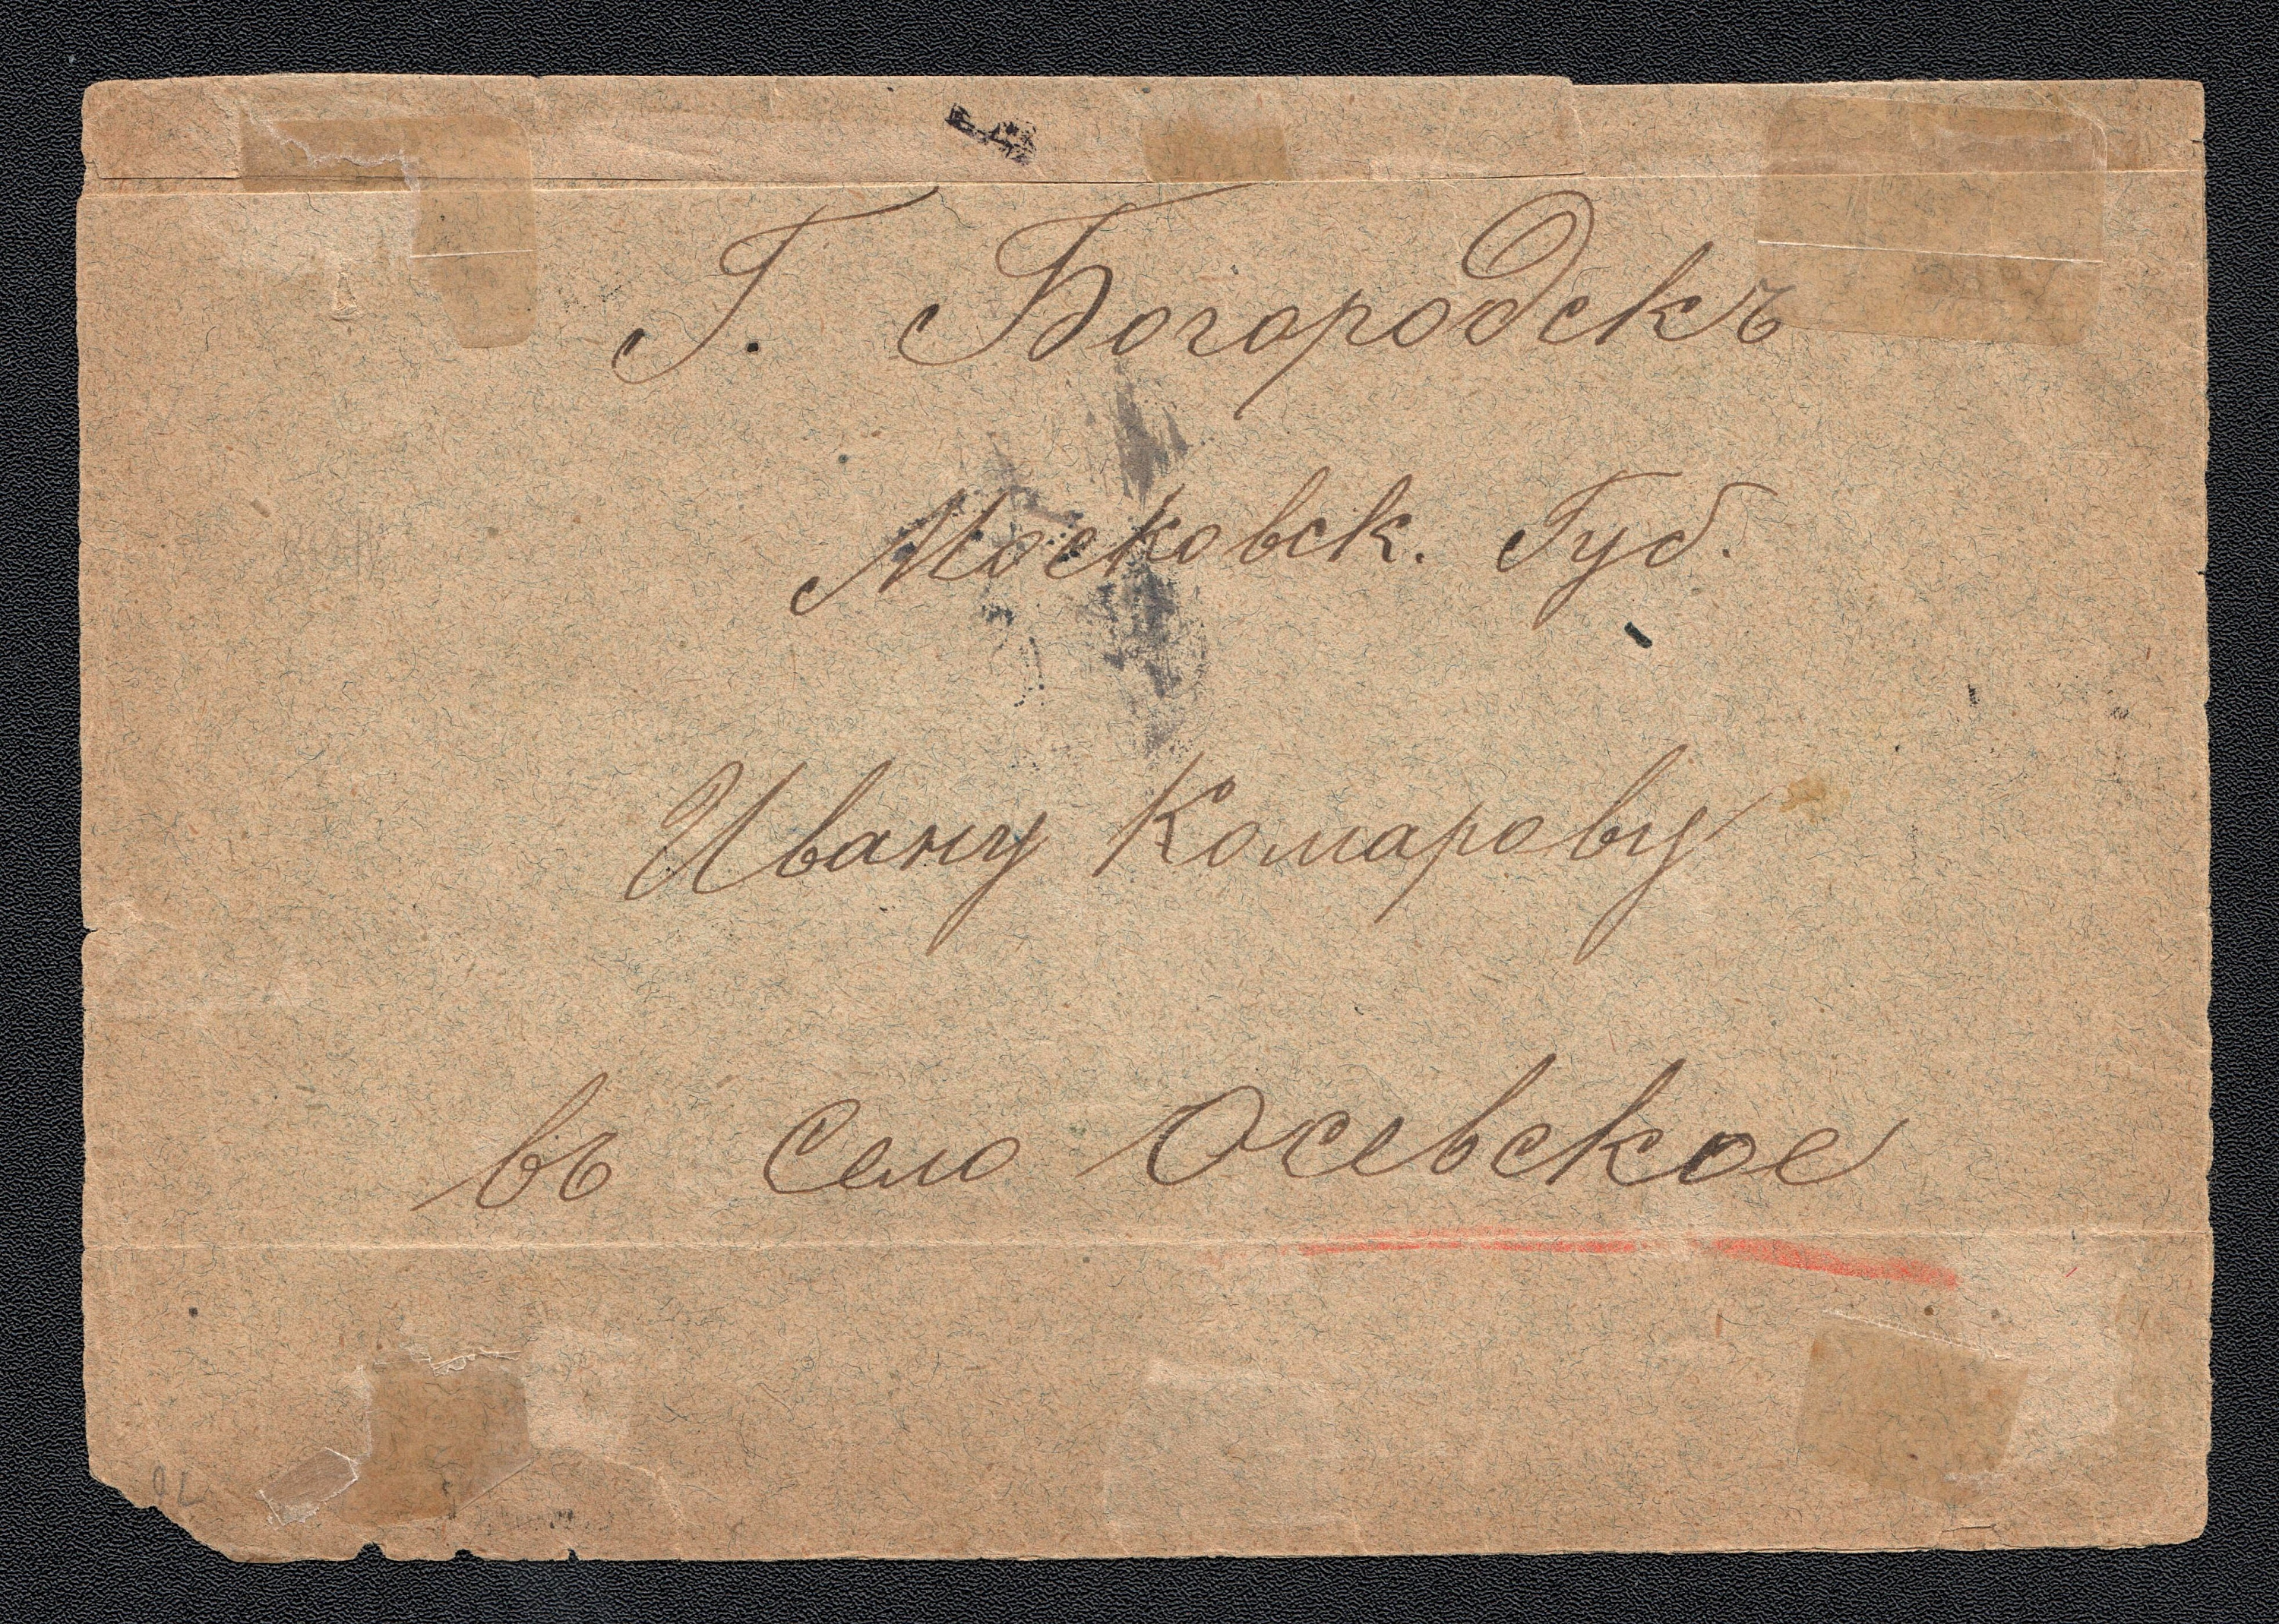 Г. Богородскъ
Московск. Губ.
Ивану Комарову
въ Село Осевское